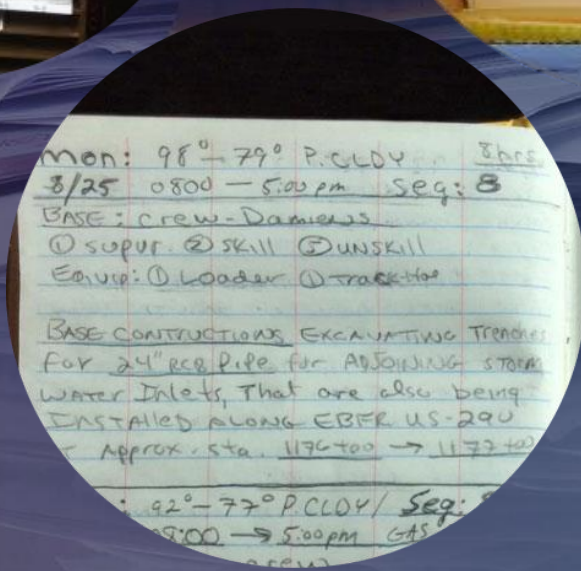 Mon: 98° - 79° P. CLDY 8hrs
8/25 0800 — 5:00 pm Seg: 8
BASE: Crew - Damiens
① SUPUR. ② SKILL ⑤ UNSKILL
EQUIP: ① Loader ① Track-Hoe
BASE CONTRUCTIONS EXCAVATING Trenches
For 24" RCB Pipe for ADJOINING STORM
WATER Inlets, That are also being
INSTALLED ALONG EBFR US-290
Approx. Sta. 1176+00 → 1177+00
: 92° - 77° P.CLDY/ Seg:
08:00 → 5:00pm GAS
crew